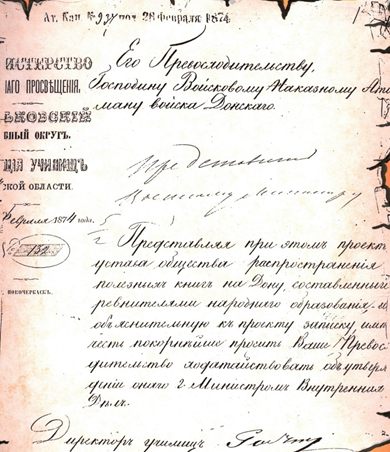 Ат. Кан. № 937 пол. 26 Февраля 1874
ИСТЕРСТВО
НАГО ПРОСВѢЩЕНІЯ,
ЬКОВСКІЙ
БНЫЙ ОКРУГЪ.
ЦІЯ УЧИЛИЩЪ
КОЙ ОБЛАСТИ.
Февраля 1874 года.
132
НОВОЧЕРКАСКЪ.
Его Превосходительству,
Господину Войсковому Наказному Ата
ману войска Донскаго.
Представить
Военному Министру
Представляя при этомъ проектъ
устава общества распространенія
полезныхъ книгъ на Дону, составленный
ревнителями народнаго образованія и
объяснительную къ проекту записку, имѣю
честь покорнѣйше просить Ваше Превосхо
дительство ходатайствовать объ утверж
деніи онаго г. Министромъ Внутреннихъ
Дѣлъ.
Директоръ училищъ